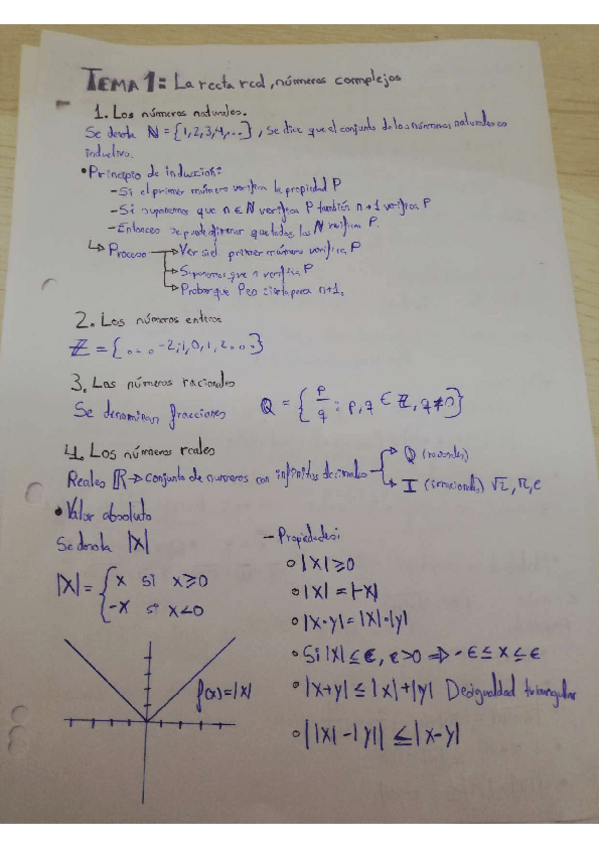 TEMA 1: La recta real, números complejos
1. Los números naturales.
Se denota ℕ = {1,2,3,4,...}, Se dice que el conjunto de los números naturales es
inductivo.
• Principio de inducción:
- Si el primer número verifica la propiedad P
- Si suponemos que n ∈ ℕ verifica P también n+1 verifica P
- Entonces se puede afirmar que todos los ℕ verifican P.
↳ Proceso → Ver si el primer número verifica P
→ Suponemos que n verifica P
→ Probar que P es cierta para n+1.
2. Los números enteros
ℤ = {... -2,1,0,1,2...}
3. Los números racionales
Se denominan fracciones ℚ = {p/q : p,q ∈ ℤ, q≠0}
4. Los números reales
Reales ℝ → conjunto de numeros con infinitos decimales → ℚ (racionales)
→ I (irracionales) √2, π, e
• Valor absoluto
Se denota |x|
|x| = { x si x≥0
-x si x<0
f(x)=|x|
- Propiedades:
∘ |x|≥0
∘ |x| = |-x|
∘ |x·y| = |x|·|y|
∘ Si |x| ≤ ε, ε>0 ⇒ -ε ≤ x ≤ ε
∘ |x+y| ≤ |x|+|y| Desigualdad triangular
∘ ||x|-|y|| ≤ |x-y|